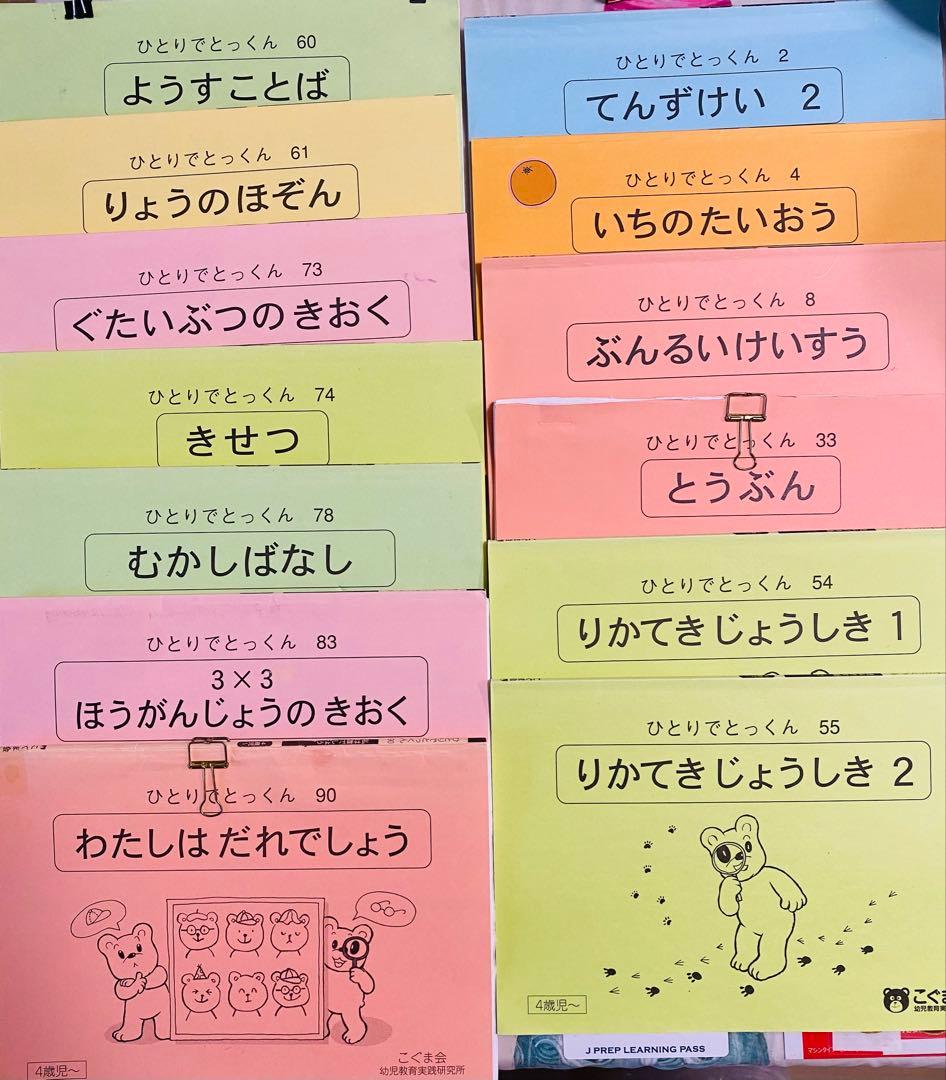 ひとりでとっくん 60
ようすことば
ひとりでとっくん 61
りょうのほぞん
ひとりでとっくん 73
ぐたいぶつのきおく
ひとりでとっくん 74
きせつ
ひとりでとっくん 78
むかしばなし
ひとりでとっくん 83
3×3
ほうがんじょうのきおく
ひとりでとっくん 90
わたしはだれでしょう
4歳児～
こぐま会
幼児教育実践研究所
ひとりでとっくん 2
てんずけい 2
ひとりでとっくん 4
いちのたいおう
ひとりでとっくん 8
ぶんるいけいすう
ひとりでとっくん 33
とうぶん
ひとりでとっくん 54
りかてきじょうしき 1
ひとりでとっくん 55
りかてきじょうしき 2
4歳児～
こぐま
幼児教育実
J PREP LEARNING PASS